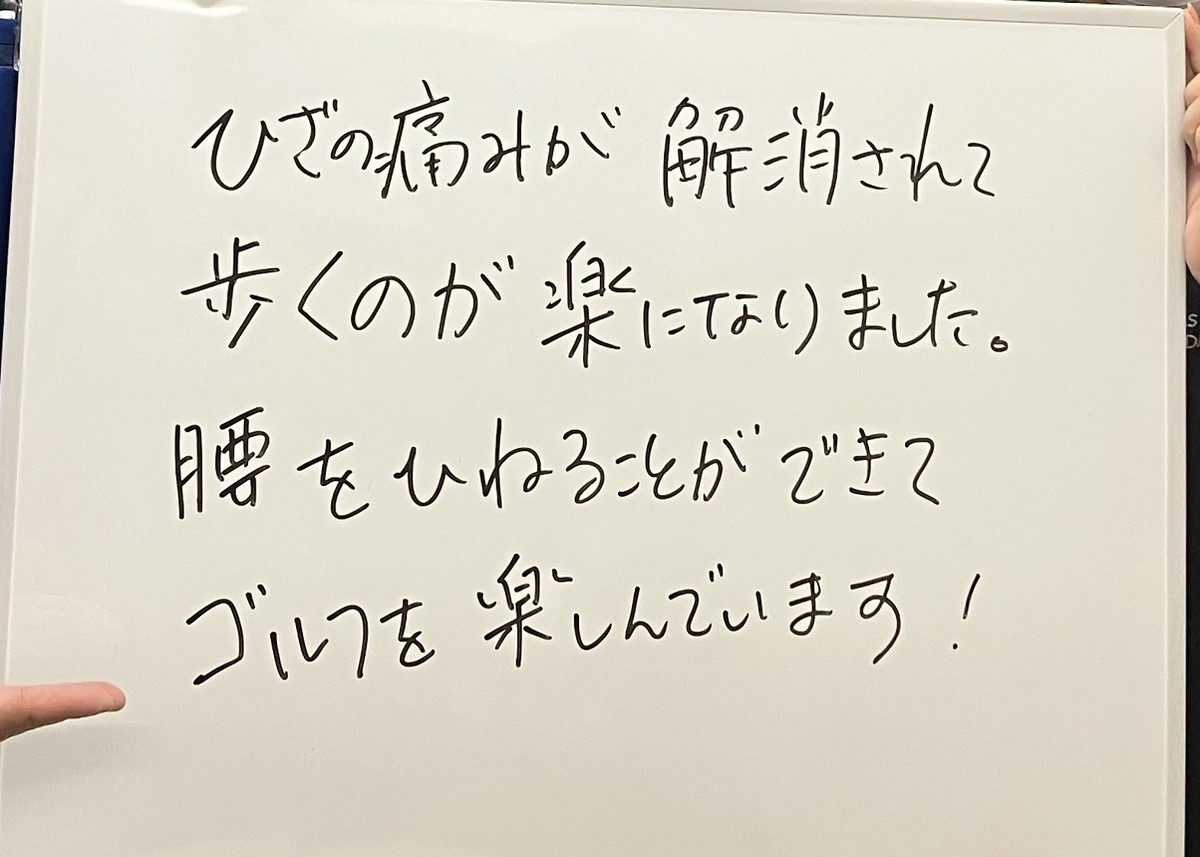 ひざの痛みが解消されて
歩くのが楽になりました。
腰をひねることができて
ゴルフを楽しんでいます!